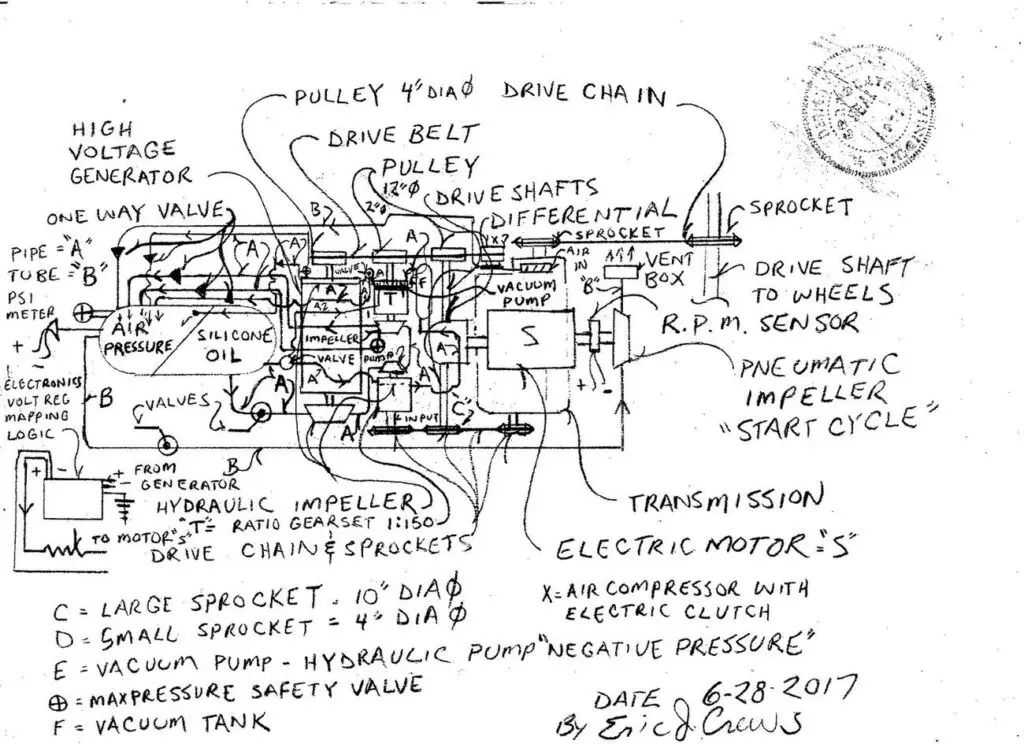 PULLEY 4" DIA Ø DRIVE CHAIN
HIGH
VOLTAGE
GENERATOR
DRIVE BELT
PULLEY
12"Ø
2"Ø
DRIVE SHAFTS
DIFFERENTIAL
SPROCKET
SPROCKET
ONE WAY VALVE
PIPE = "A"
TUBE = "B"
PSI
METER
AIR
PRESSURE
SILICONE
OIL
VALVE
A2
IMPELLER
VALVE
PUMP
T
F
"X"
AIR
IN
VACUUM
PUMP
"B"
VENT
BOX
DRIVE SHAFT
TO WHEELS
R.P.M. SENSOR
S
PNEUMATIC
IMPELLER
"START CYCLE"
ELECTRONICS
VOLT REG
MAPPING
LOGIC
VALVES
INPUT
"C"
FROM
GENERATOR
TO MOTOR "S"
HYDRAULIC IMPELLER
"T" = RATIO GEARSET 1:150
DRIVE CHAIN & SPROCKETS
TRANSMISSION
ELECTRIC MOTOR = "S"
X = AIR COMPRESSOR WITH
ELECTRIC CLUTCH
C = LARGE SPROCKET = 10" DIA Ø
D = SMALL SPROCKET = 4" DIA Ø
E = VACUUM PUMP - HYDRAULIC PUMP "NEGATIVE PRESSURE"
⊕ = MAXPRESSURE SAFETY VALVE
F = VACUUM TANK
DATE 6-28-2017
BY Eric J. Crews